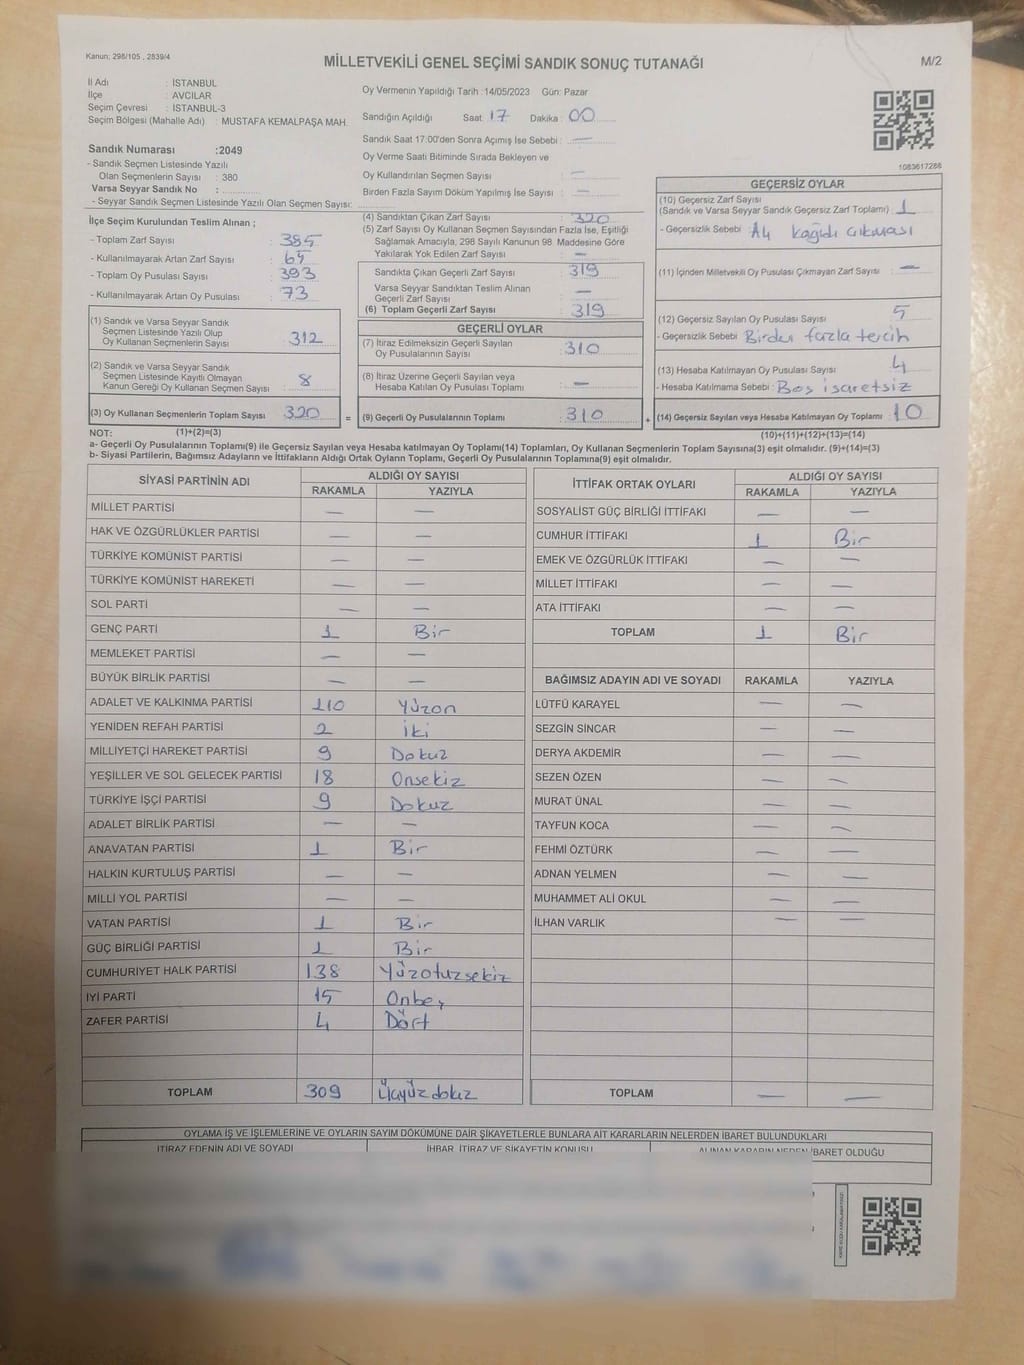 Kanun: 298/105 , 2839/4
MİLLETVEKİLİ GENEL SEÇİMİ SANDIK SONUÇ TUTANAĞI
M/2
İl Adı : İSTANBUL
İlçe : AVCILAR
Seçim Çevresi : İSTANBUL-3
Seçim Bölgesi (Mahalle Adı) : MUSTAFA KEMALPAŞA MAH.
Oy Vermenin Yapıldığı Tarih :14/05/2023 Gün: Pazar
Sandığın Açıldığı Saat 17 Dakika : 00
Sandık Saat 17:00'den Sonra Açımış İse Sebebi : —
Oy Verme Saati Bitiminde Sırada Bekleyen ve
Oy Kullandırılan Seçmen Sayısı : —
Birden Fazla Sayım Döküm Yapılmış İse Sayısı : —
1083617288
Sandık Numarası :2049
- Sandık Seçmen Listesinde Yazılı
Olan Seçmenlerin Sayısı : 380
Varsa Seyyar Sandık No :
- Seyyar Sandık Seçmen Listesinde Yazılı Olan Seçmen Sayısı:
İlçe Seçim Kurulundan Teslim Alınan ;
- Toplam Zarf Sayısı : 385
- Kullanılmayarak Artan Zarf Sayısı : 65
- Toplam Oy Pusulası Sayısı : 393
- Kullanılmayarak Artan Oy Pusulası : 73
(1) Sandık ve Varsa Seyyar Sandık
Seçmen Listesinde Yazılı Olup
Oy Kullanan Seçmenlerin Sayısı : 312
(2) Sandık ve Varsa Seyyar Sandık
Seçmen Listesinde Kayıtlı Olmayan
Kanun Gereği Oy Kullanan Seçmen Sayısı : 8
(3) Oy Kullanan Seçmenlerin Toplam Sayısı : 320 =
(4) Sandıktan Çıkan Zarf Sayısı : 320
(5) Zarf Sayısı Oy Kullanan Seçmen Sayısından Fazla İse, Eşitliği
Sağlamak Amacıyla, 298 Sayılı Kanunun 98. Maddesine Göre
Yakılarak Yok Edilen Zarf Sayısı : —
Sandıkta Çıkan Geçerli Zarf Sayısı : 319
Varsa Seyyar Sandıktan Teslim Alınan
Geçerli Zarf Sayısı : —
(6) Toplam Geçerli Zarf Sayısı : 319
GEÇERLİ OYLAR
(7) İtiraz Edilmeksizin Geçerli Sayılan
Oy Pusulalarının Sayısı : 310
(8) İtiraz Üzerine Geçerli Sayılan veya
Hesaba Katılan Oy Pusulası Toplamı : —
(9) Geçerli Oy Pusulalarının Toplamı : 310 +
GEÇERSİZ OYLAR
(10) Geçersiz Zarf Sayısı
(Sandık ve Varsa Seyyar Sandık Geçersiz Zarf Toplamı) : 1
- Geçersizlik Sebebi : A4 kağıdı çıkması
(11) İçinden Milletvekili Oy Pusulası Çıkmayan Zarf Sayısı : —
(12) Geçersiz Sayılan Oy Pusulası Sayısı : 5
- Geçersizlik Sebebi : Birden fazla tercih
(13) Hesaba Katılmayan Oy Pusulası Sayısı : 4
- Hesaba Katılmama Sebebi : Boş işaretsiz
(14) Geçersiz Sayılan veya Hesaba Katılmayan Oy Toplamı : 10
NOT: (1)+(2)=(3) (10)+(11)+(12)+(13)=(14)
a- Geçerli Oy Pusulalarının Toplamı(9) ile Geçersiz Sayılan veya Hesaba katılmayan Oy Toplamı(14) Toplamları, Oy Kullanan Seçmenlerin Toplam Sayısına(3) eşit olmalıdır. (9)+(14)=(3)
b- Siyasi Partilerin, Bağımsız Adayların ve İttifakların Aldığı Ortak Oyların Toplamı, Geçerli Oy Pusulalarının Toplamına(9) eşit olmalıdır.
SİYASİ PARTİNİN ADI ALDIĞI OY SAYISI
RAKAMLA YAZIYLA
MİLLET PARTİSİ — —
HAK VE ÖZGÜRLÜKLER PARTİSİ — —
TÜRKİYE KOMÜNİST PARTİSİ — —
TÜRKİYE KOMÜNİST HAREKETİ — —
SOL PARTİ — —
GENÇ PARTİ 1 Bir
MEMLEKET PARTİSİ — —
BÜYÜK BİRLİK PARTİSİ — —
ADALET VE KALKINMA PARTİSİ 110 Yüzon
YENİDEN REFAH PARTİSİ 2 İki
MİLLİYETÇİ HAREKET PARTİSİ 9 Dokuz
YEŞİLLER VE SOL GELECEK PARTİSİ 18 Onsekiz
TÜRKİYE İŞÇİ PARTİSİ 9 Dokuz
ADALET BİRLİK PARTİSİ — —
ANAVATAN PARTİSİ 1 Bir
HALKIN KURTULUŞ PARTİSİ — —
MİLLİ YOL PARTİSİ — —
VATAN PARTİSİ 1 Bir
GÜÇ BİRLİĞİ PARTİSİ 1 Bir
CUMHURİYET HALK PARTİSİ 138 Yüzotuzsekiz
İYİ PARTİ 15 Onbeş
ZAFER PARTİSİ 4 Dört
TOPLAM 309 Üçyüzdokuz
İTTİFAK ORTAK OYLARI ALDIĞI OY SAYISI
RAKAMLA YAZIYLA
SOSYALİST GÜÇ BİRLİĞİ İTTİFAKI — —
CUMHUR İTTİFAKI 1 Bir
EMEK VE ÖZGÜRLÜK İTTİFAKI — —
MİLLET İTTİFAKI — —
ATA İTTİFAKI — —
TOPLAM 1 Bir
BAĞIMSIZ ADAYIN ADI VE SOYADI RAKAMLA YAZIYLA
LÜTFÜ KARAYEL — —
SEZGİN SİNCAR — —
DERYA AKDEMİR — —
SEZEN ÖZEN — —
MURAT ÜNAL — —
TAYFUN KOCA — —
FEHMİ ÖZTÜRK — —
ADNAN YELMEN — —
MUHAMMET ALİ OKUL — —
İLHAN VARLIK — —
TOPLAM — —
OYLAMA İŞ VE İŞLEMLERİNE VE OYLARIN SAYIM DÖKÜMÜNE DAİR ŞİKAYETLERLE BUNLARA AİT KARARLARIN NELERDEN İBARET BULUNDUKLARI
İTİRAZ EDENİN ADI VE SOYADI İHBAR, İTİRAZ VE ŞİKAYETİN KONUSU ALINAN KARARIN NEDEN İBARET OLDUĞU